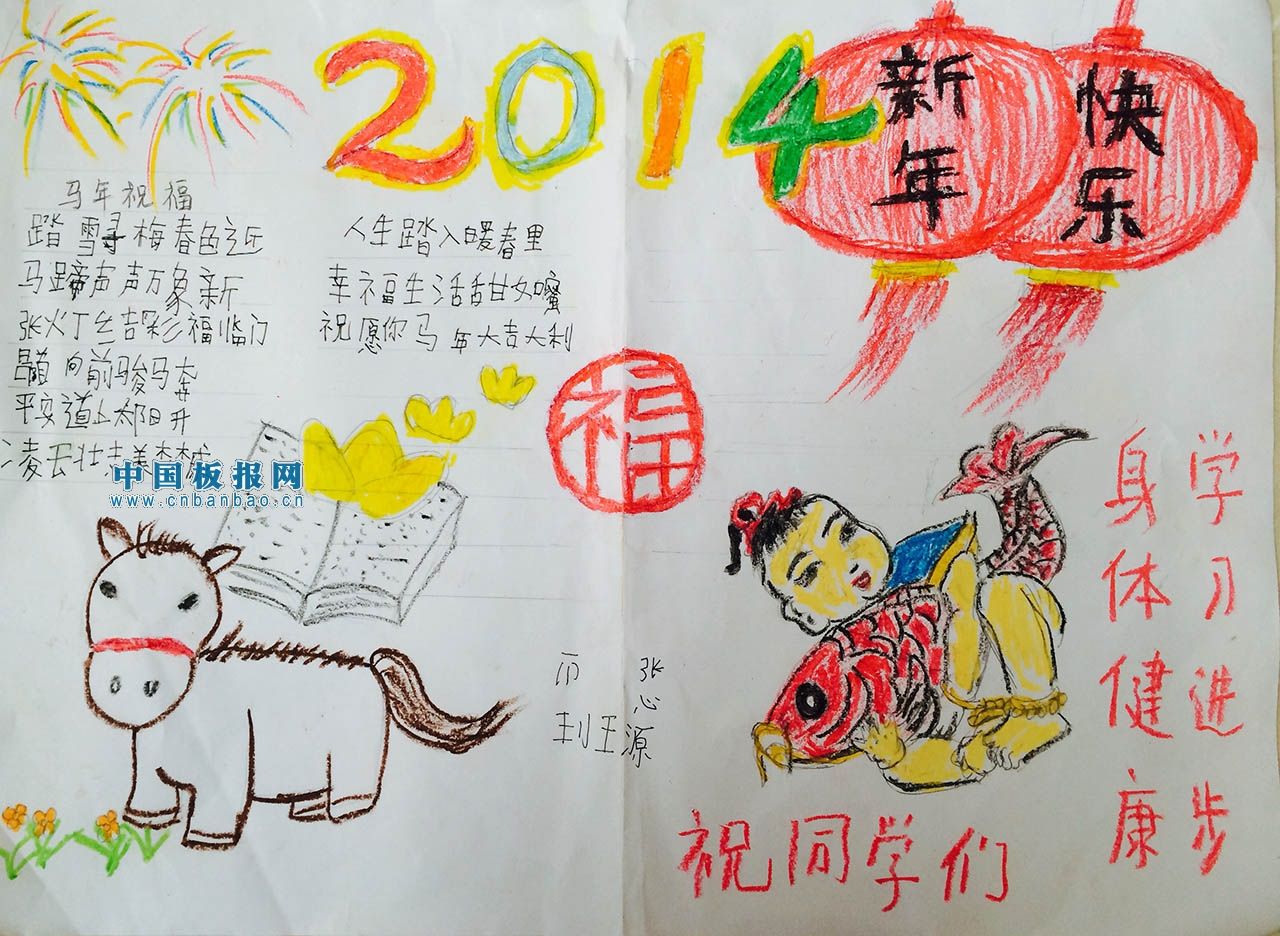 2014
新年
快乐
马年祝福
踏雪寻梅春色近
马蹄声声万象新
张灯吉彩福临门
向前骏马奔
平安道上太阳升
凌云壮志美梦
人生踏入暖春里
幸福生活甜如蜜
祝愿你马年大吉大利
福
中国板报网
www.cnbanbao.cn
张
心
源
学习进步
身体健康
祝同学们